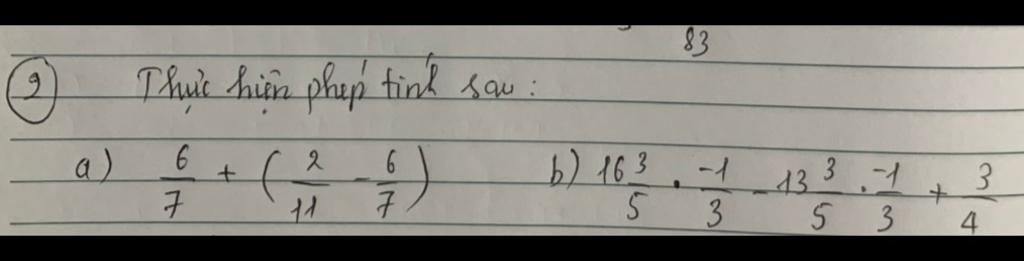 83
9 Thực hiện phép tính sau:
a) 6/7 + (2/11 - 6/7) b) 16 3/5 . -1/3 - 13 3/5 . -1/3 + 3/4